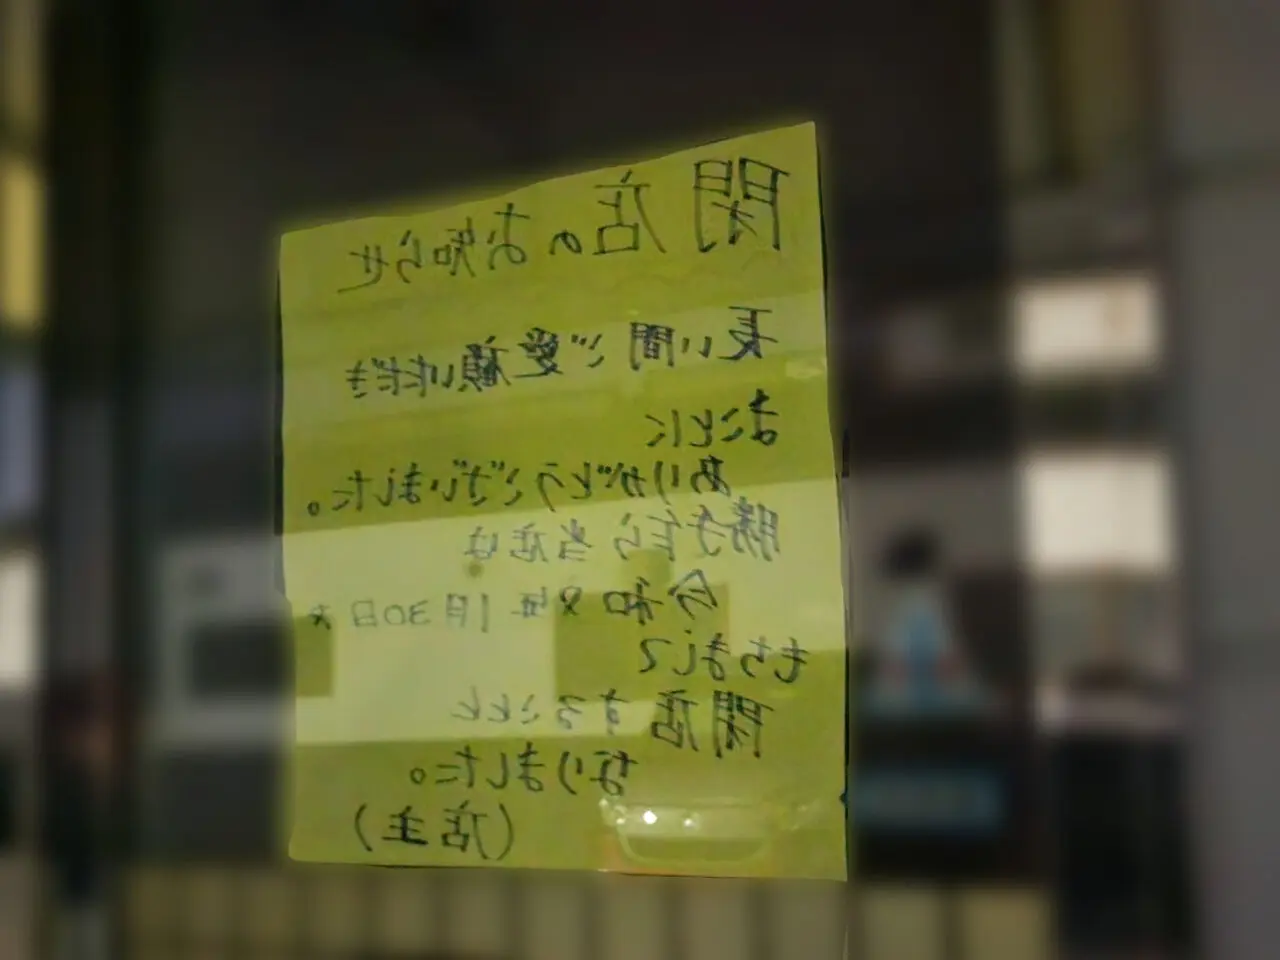 閉店のお知らせ
長い間ご愛顧いただき
まことに
ありがとうございました。
勝手乍ら当店は
令和8年1月30日を
もちまして
閉店することと
なりました。
(店主)